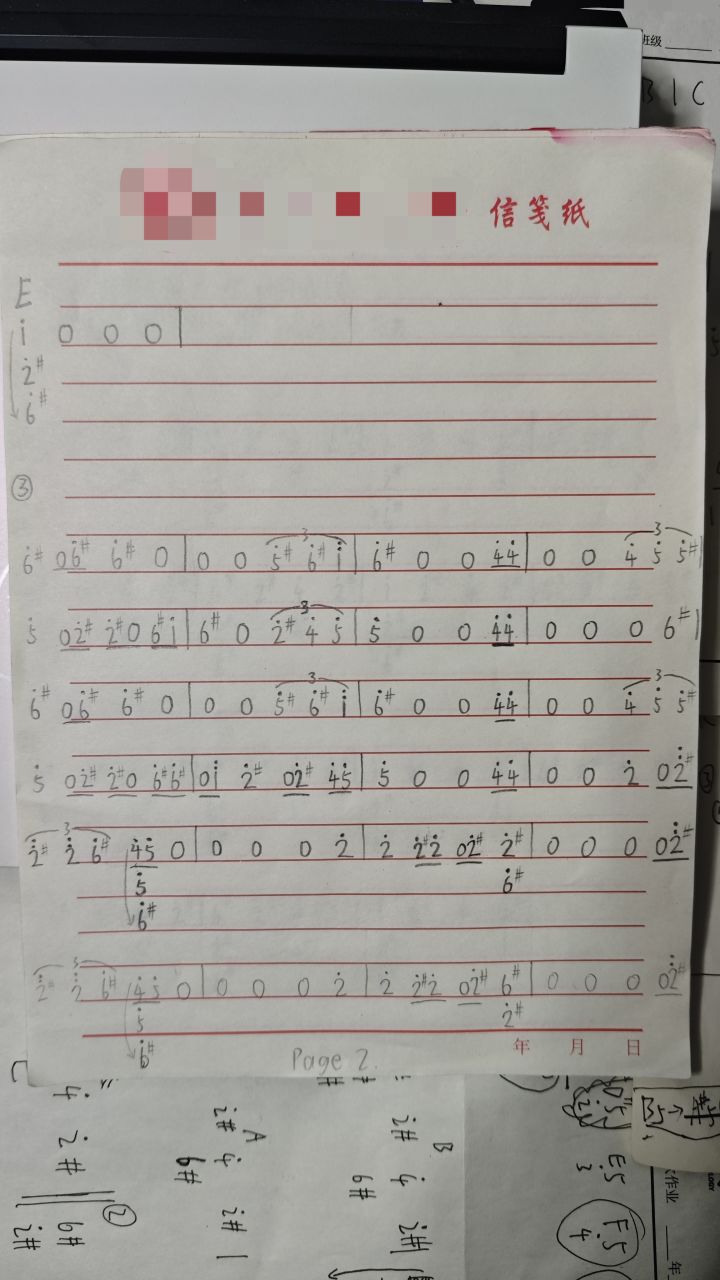 班级
B I C
信笺纸
E
i 0 0 0 |
2̇#
6̇#
③
6̇# 06̇# 6̇# 0 | 0 0 3 5̇# 6̇# i | 6̇# 0 0 4̇4̇ | 0 0 3 4̇ 5̇ 5̇# |
5̇ 02̇# 2̇#0 6̇#i | 6̇# 0 3 2̇# 4̇ 5̇ | 5̇ 0 0 4̇4̇ | 0 0 0 6# |
6̇# 06̇# 6̇# 0 | 0 0 3 5̇# 6̇# i | 6̇# 0 0 4̇4̇ | 0 0 3 4̇ 5̇ 5̇#
5̇ 02̇# 2̇#0 6̇#6̇# | 0i 2̇# 02̇# 4̇5̇ | 5̇ 0 0 4̇4̇ | 0 0 2̇ 02̈#
3 2̈# 2̈ 6̇# 4̇5̇ 0 | 0 0 0 2̇ | 2̇ 2̇#2̇ 02̇# 2̇# | 0 0 0 02̈#
5̇ 6̇#
6̇#
3 2̈# 2̈ 6̇# 4̇5̇ 0 | 0 0 0 2̇ | 2̇ 2̇#2̇ 02̇# 6̇# | 0 0 0 02̈#
5̇ 2̇#
6̇#
年 月 日
Page 2.
A
B
②
E5
3
F.5
4
作业
年